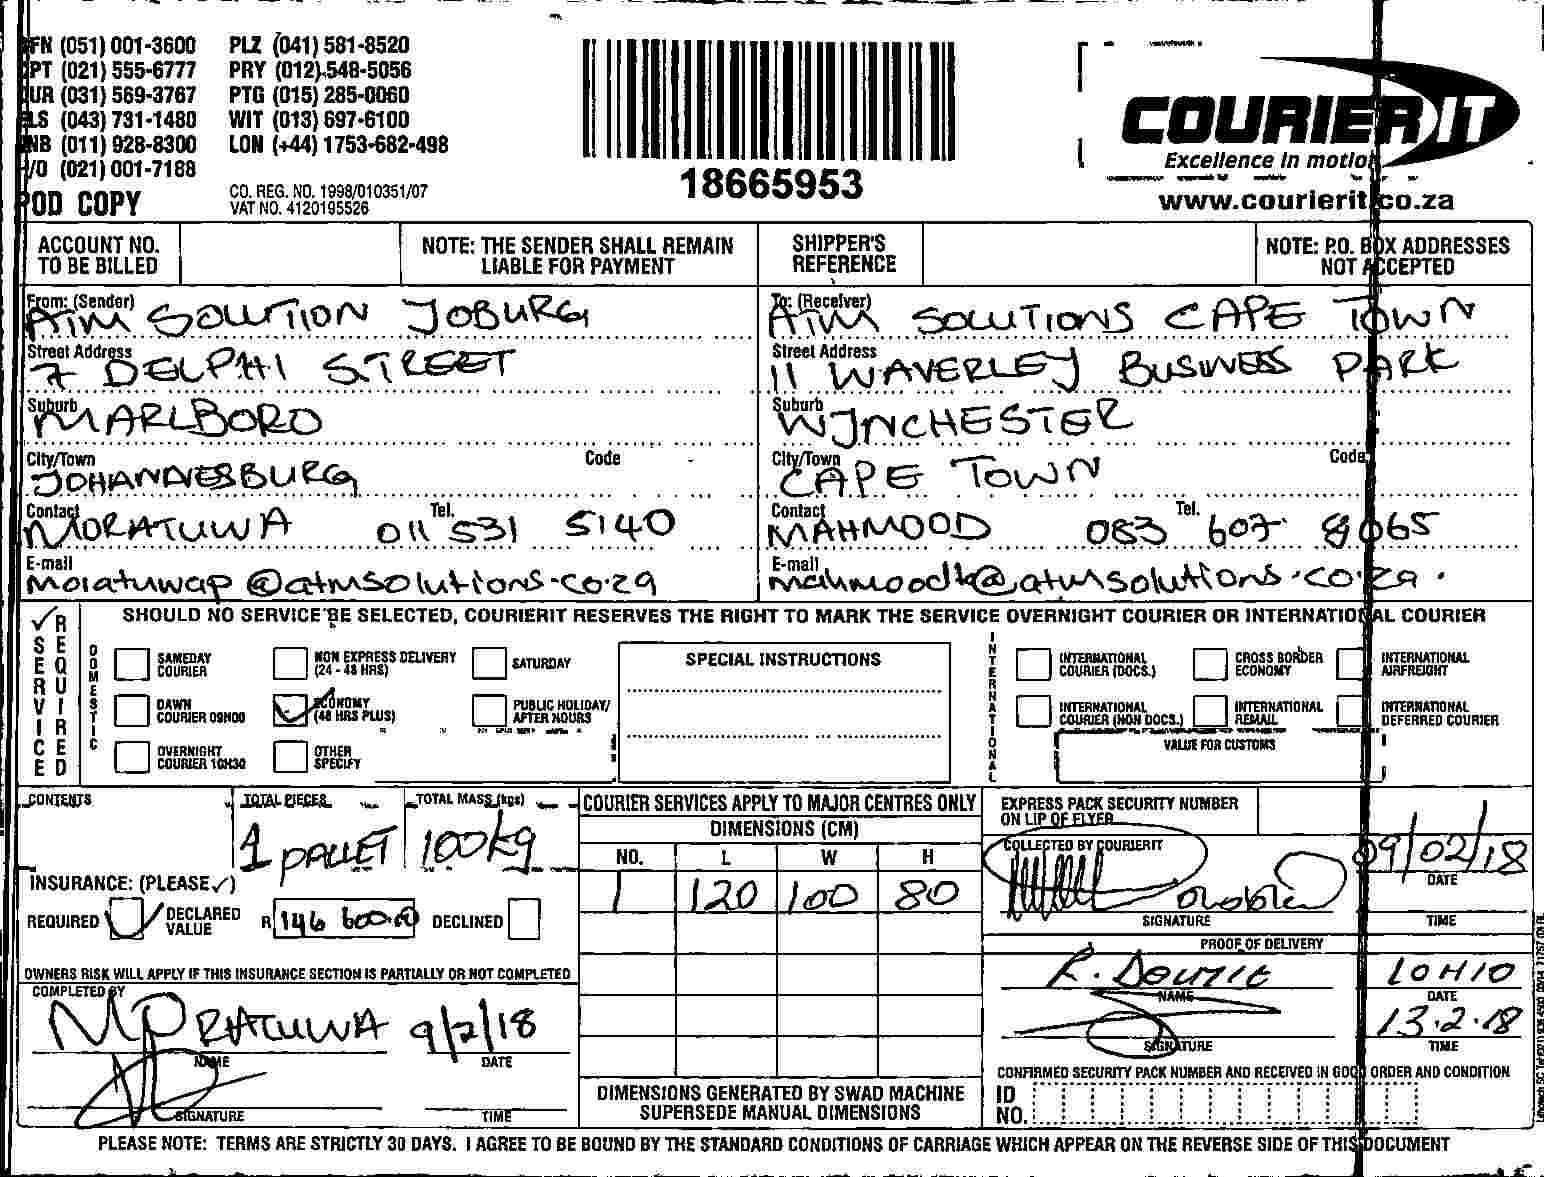 FN (051) 001-3600 PLZ (041) 581-8520
PT (021) 555-6777 PRY (012) 548-5056
UR (031) 569-3767 PTG (015) 285-0060
LS (043) 731-1480 WIT (013) 697-6100
NB (011) 928-8300 LON (+44) 1753-682-498
/O (021) 001-7188
POD COPY
CO. REG. NO. 1998/010351/07
VAT NO. 4120195526
18665953
COURIER IT
Excellence in motion
www.courierit.co.za
ACCOUNT NO. TO BE BILLED
NOTE: THE SENDER SHALL REMAIN LIABLE FOR PAYMENT
SHIPPER'S REFERENCE
NOTE: P.O. BOX ADDRESSES NOT ACCEPTED
From: (Sender)
ATM SOLUTION JOBURG
Street Address
7 DELPHI STREET
Suburb
MARLBORO
City/Town
JOHANNESBURG
Code
Contact
MORATUWA
Tel.
011 531 5140
E-mail
moratuwap@atmsolutions.co.za
To: (Receiver)
ATM SOLUTIONS CAPE TOWN
Street Address
11 WAVERLEY BUSINESS PARK
Suburb
WJNCHESTER
City/Town
CAPE TOWN
Code
Contact
MAHMOOD
Tel.
083 607 8065
E-mail
@atmsolutions.co.za.
SHOULD NO SERVICE BE SELECTED, COURIERIT RESERVES THE RIGHT TO MARK THE SERVICE OVERNIGHT COURIER OR INTERNATIONAL COURIER
SERVICE REQUIRED
DOMESTIC
SAMEDAY COURIER
NON EXPRESS DELIVERY (24 - 48 HRS)
SATURDAY
DAWN COURIER 09H00
ECONOMY (48 HRS PLUS)
PUBLIC HOLIDAY/ AFTER HOURS
OVERNIGHT COURIER 10H30
OTHER SPECIFY
SPECIAL INSTRUCTIONS
INTERNATIONAL
INTERNATIONAL COURIER (DOCS.)
CROSS BORDER ECONOMY
INTERNATIONAL AIRFREIGHT
INTERNATIONAL COURIER (NON DOCS.)
INTERNATIONAL REMAIL
INTERNATIONAL DEFERRED COURIER
VALUE FOR CUSTOMS
CONTENTS
TOTAL PIECES
1 PALLET
TOTAL MASS (kgs)
100kg
INSURANCE: (PLEASE ✓)
REQUIRED
DECLARED VALUE
R 146 600.00
DECLINED
OWNERS RISK WILL APPLY IF THIS INSURANCE SECTION IS PARTIALLY OR NOT COMPLETED
COMPLETED BY
RATUWA 9/2/18
NAME DATE
SIGNATURE TIME
COURIER SERVICES APPLY TO MAJOR CENTRES ONLY
DIMENSIONS (CM)
NO. L W H
1 120 100 80
DIMENSIONS GENERATED BY SWAD MACHINE SUPERSEDE MANUAL DIMENSIONS
EXPRESS PACK SECURITY NUMBER ON LIP OF FLYER
COLLECTED BY COURIERIT
09/02/18
DATE
SIGNATURE TIME
PROOF OF DELIVERY
10H10
NAME DATE
13.2.18
SIGNATURE TIME
CONFIRMED SECURITY PACK NUMBER AND RECEIVED IN GOOD ORDER AND CONDITION
ID NO.
PLEASE NOTE: TERMS ARE STRICTLY 30 DAYS. I AGREE TO BE BOUND BY THE STANDARD CONDITIONS OF CARRIAGE WHICH APPEAR ON THE REVERSE SIDE OF THIS DOCUMENT